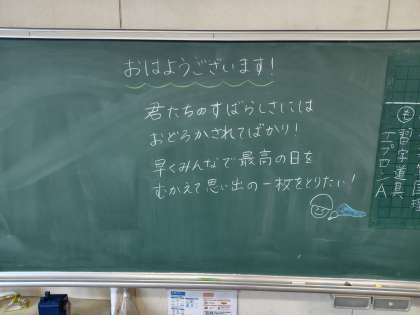 おはようございます!
君たちのすばらしさには
おどろかされてばかり!
早くみんなで最高の日を
むかえて思い出の一枚をとりたい!
も
習字道具
エプロンA